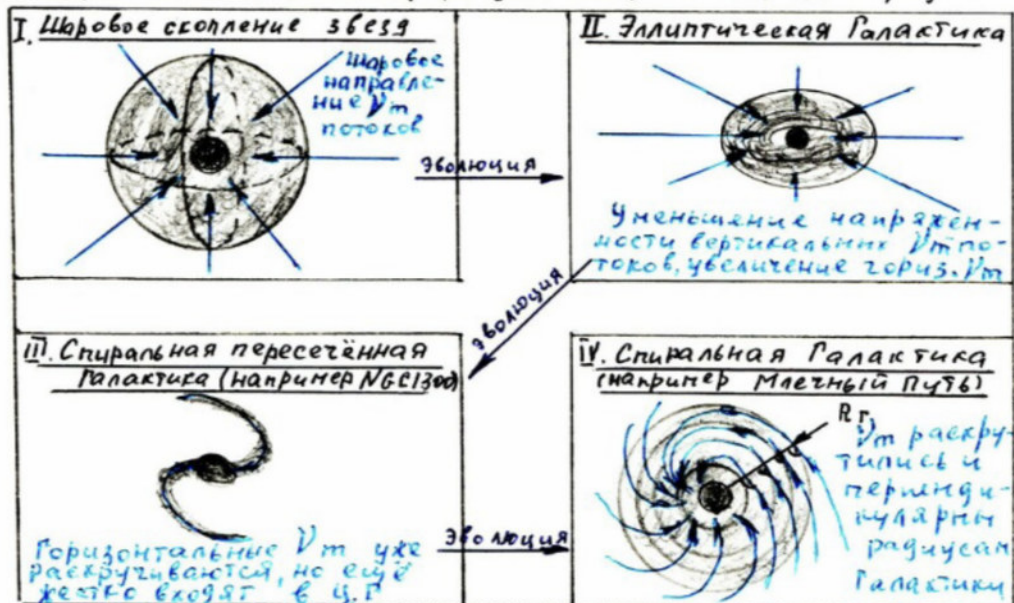 I. Шаровое скопление звезд
Шаровое
направле-
ние Vm
потоков
эволюция
II. Эллиптическая Галактика
Уменьшение напряжен-
ности вертикальных Vm по-
токов, увеличение гориз. Vm
эволюция
III. Спиральная пересечённая
Галактика (например NGC1300)
Горизонтальные Vm уже
раскручиваются, но ещё
жестко входят в Ц.Г
эволюция
IV. Спиральная Галактика
(например Млечный Путь)
Rг
Vm раскру-
тились и
перпенди-
кулярны
радиусам
Галактики